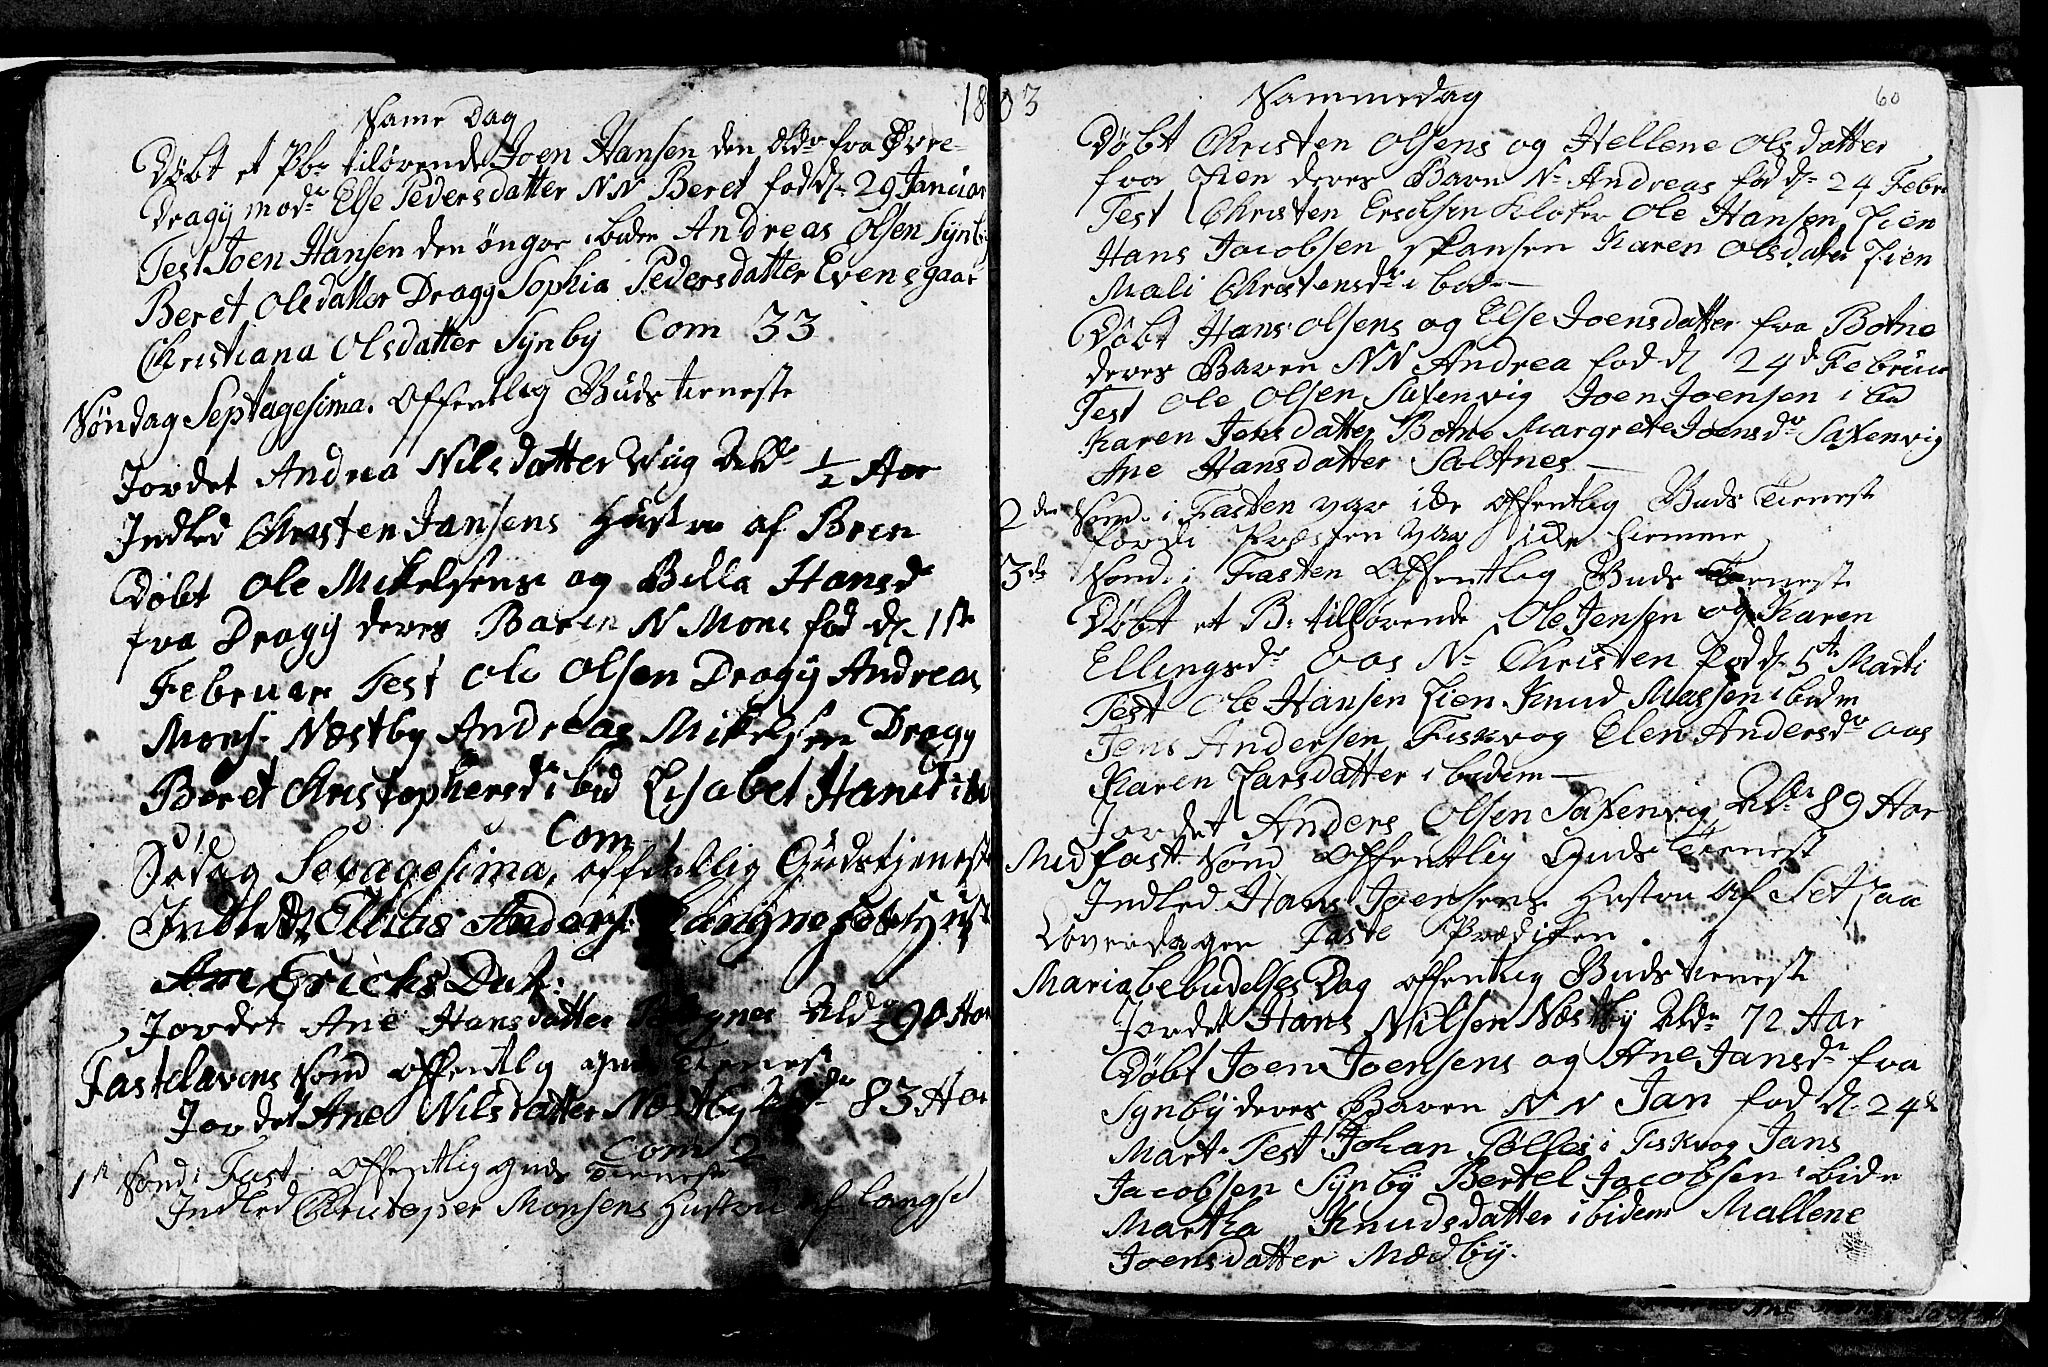 1803
Same Dag
Døbt et Pb: tilørende Joen Hansen den Eld: fra Øvre-
Dragy mod: Else Pedersdatter NN Beret fød d: 29 Januar
Test Joen Hansen den öngre ibidm Andreas Olsen Synby
Beret Olsdatter Dragy Sophia Pedersdatter Evensgaar
Christiana Olsdatter Synby Com 33
Søndag Septagesima. Offentlig Guds tieneste
Jordet Andrea Nilsdatter Alde 1/2 Aar
Indled Christen Jansens Hustru af Bren
Døbt Ole Mikelsens og Billa Hansd:
fra Dragy deres Baren N Mons fød d. 1ste
Februar Test Ole Olsen Dragy Andreas
Mons: Næstby Andreas Mikelsen Dragy
Beret Christophersd: ibid Lisabet Hansd: ibid
Com
Sødag Sexagesima, offentlig Gudstjeneste
Indled Ellias Anders: Hust
Ane Erichs Dat:
Jordet Ane Hansdatter Alde 90 Aar
Fastelavens Sønd offentlig guds tienest
Jordet Ane Nilsdatter Næstby Alde 83 Aar
Com 2
1st Sønd i Fast: Offentlig guds tieneste
Indled Christoper Monsens Hustru af Langset
60
Sammedag
Døbt Christen Olsens og Hellene Olsdatter
fra Lien deres Barn N: Andreas fød d: 24 Febr
Test Christen Ericksen Kloker Ole Hansen Lien
Hans Jacobsen Karen Olsdatter Lien
Mali Christensd: i bid—
Døbt Hans Olsens og Else Joensdatter fra Botne
deres Baren NN Andrea fød d 24d Februar
Test Ole Olsen Saxenvig Joen Joensen i bid
Karen Jensdatter Botne Margrete Joensd: Saxenvig
Ane Hansdatter Saltnes—
2den Sønd. i Fasten var ike offentlig Guds Tieneste
fordi Præsten var ike hiemme
3de Sønd: i Fasten Offentlig Guds Tieneste
Døbt et B: tilhørende Ole Jensen og Karen
Ellingsd: Aas N: Christen fød d: 5te Marti
Test Ole Hansen Lien Knud Massen ibidm
Jens Andersen Fiskvog Elen Andersd: Aas
Karen Larsdatter ibidem—
Jordet Anders Olsen Saxenvig Alde 89 Aar
Midfast Sønd Offentlig Guds Tieneste
Indled Hans Joensens Hustru af Setsaa
Løverdagen Faste Prædiken.
Mariæbebudelses Dag offentlig Guds tieneste
Jordet Hans Nilsen Næstby Alde 72 Aar
Døbt Joen Joensens og Ane Jansd: fra
Synby deres Baren NN Jan fød d: 24de
Mart: Test Johan Tølles i Fiskvog Jans
Jacobsen Synby Bertel Jacobsen ibidm
Martha Knudsdatter ibidem Mallene
Joensdatter Mædby.